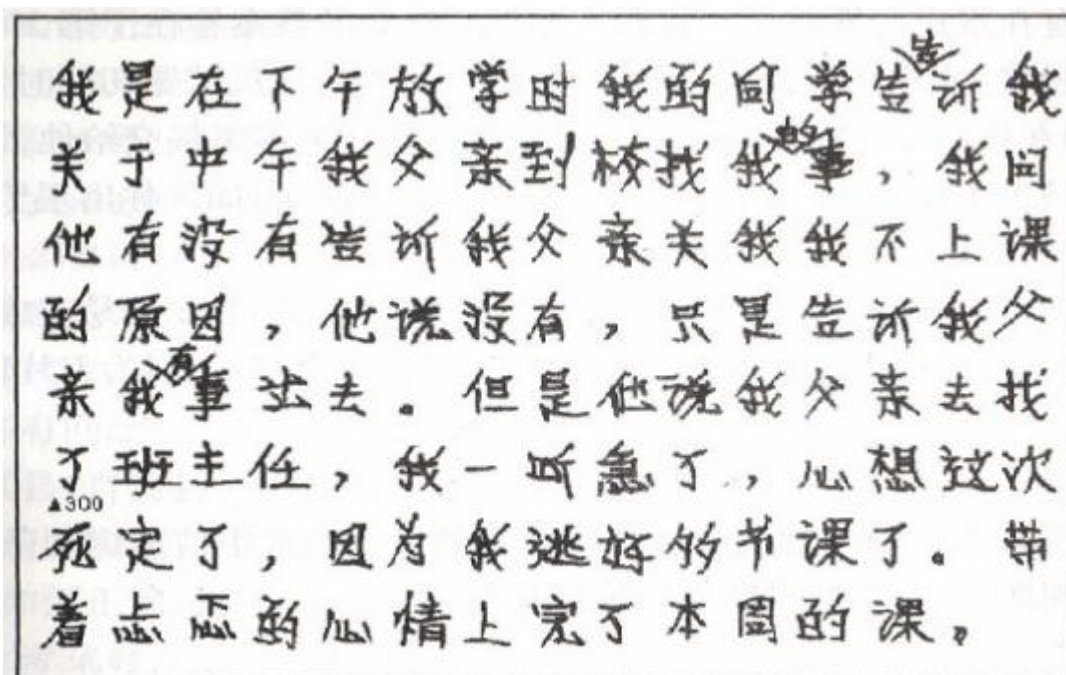 我是在下午放学时我的同学告诉我
关于中午我父亲到校找我的事，我问
他有没有告诉我父亲关我我不上课
的原因，他说没有，只是告诉我父
亲我有事出去。但是他说我父亲去找
了班主任，我一听急了，心想这次
▲300
死定了，因为我逃好多节课了。带
着忐忑的心情上完了本周的课。